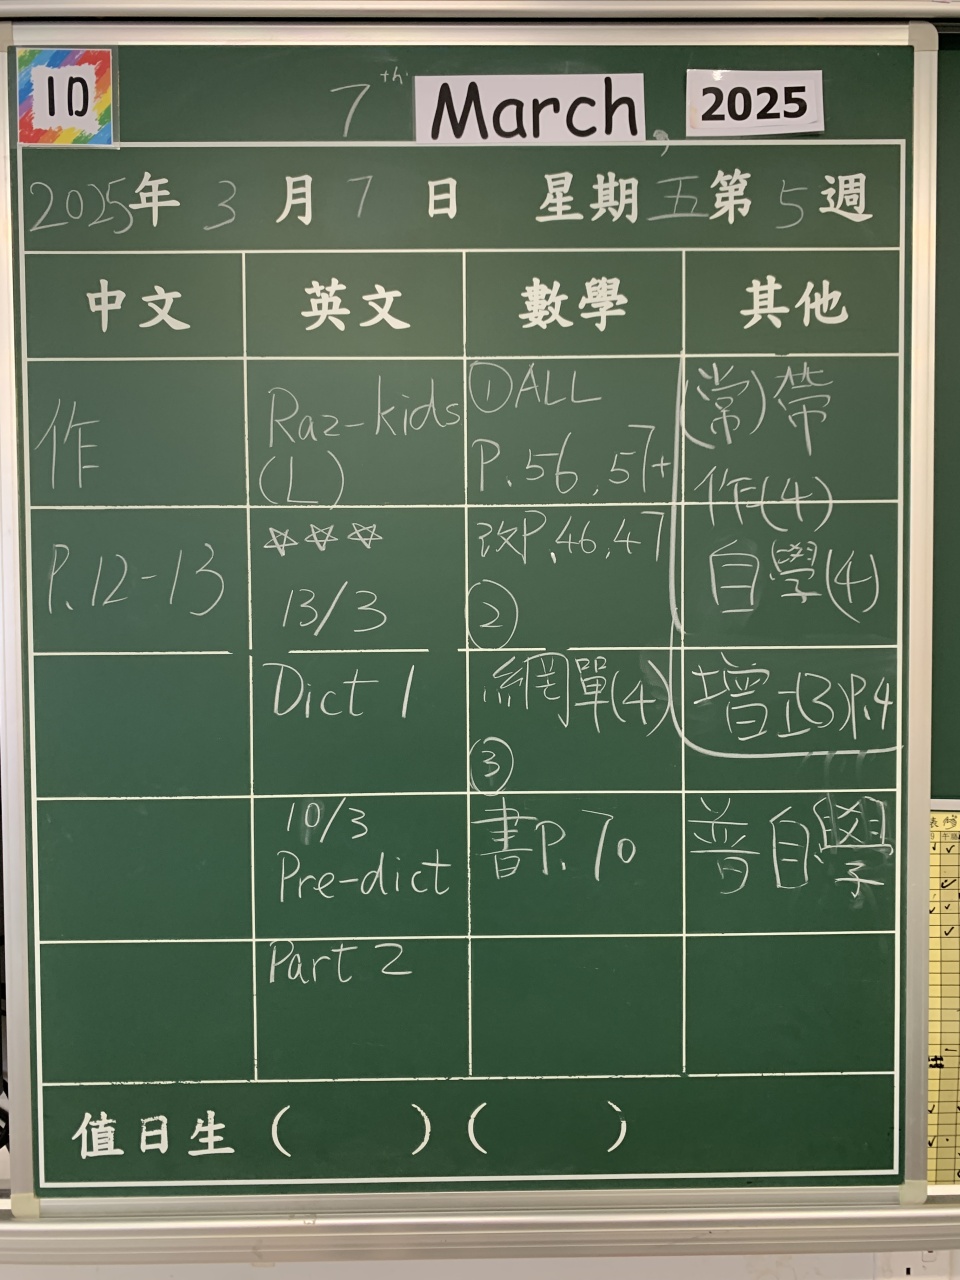 1D
7th March, 2025
2025年 3 月 7 日 星期五第 5 週
中文 英文 數學 其他
作
P.12-13
Raz-kids
(L)
☆☆☆
13/3
Dict 1
10/3
Pre-dict
Part 2
①ALL
P.56,57+
改P.46,47
②
網單(4)
③
書P.70
(常)帶
作(4)
自學(4)
增 (3)P.4
普自學
值日生 ( ) ( )